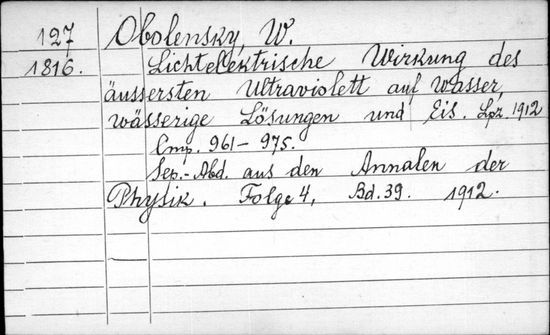 127 Obolensky, W.
1816. Lichtelektrische Wirkung des
äussersten Ultraviolett auf Wasser,
wässerige Lösungen und Eis. Lpz. 1912
Стр. 961–975.
Sep.-Abd. aus den Annalen der
Physik. Folge 4, Bd. 39. 1912.